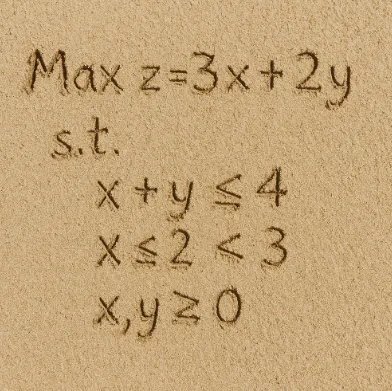 Max z=3x+2y
s.t.
x+y ≤ 4
x ≤ 2 < 3
x,y ≥ 0